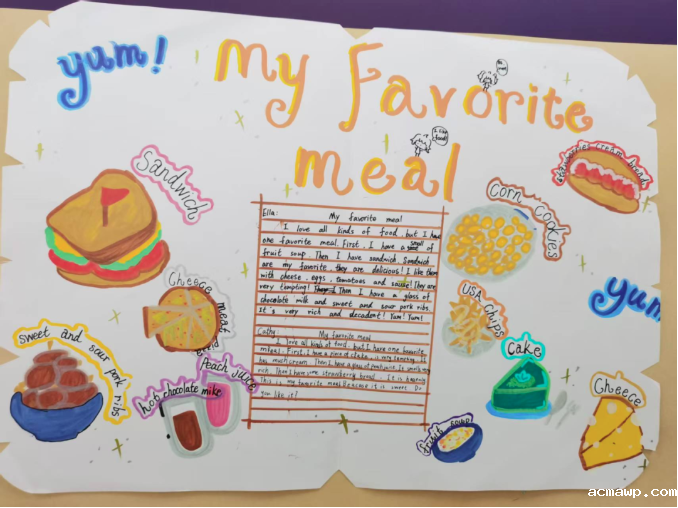 yum!
My Favorite
meal
I like food!
Sandwich
Corn Cookies
strawberries cream bread
Cheece meat
USA Chips
yum
sweet and sour pork ribs
Peach juice
hob chocolate milke
Cake
Cheece
fruite soup
Ella: My favorite meal
I love all kinds of food, but I have
one favorite meal. First, I have a small of
fruit soup. Then I have sandwich. Sandwich
are my favorite. they are delicious! I like them
with cheese, eggs, tomatoes and sauce! They are
very tempting! Then I have a glass of
chocolate milk and sweet and sour pork ribs.
It's very rich and decadent! Yum! Yum!
Cathy: My favorite meal
I love all kinds of food, but I have one favorite
meal. First, I have a piece of cake, it is very tempting. It
has much cream. Then I have a glass of peach juice. It is
rich. Then I have some strawberry bread. It is
This is my favorite meal Because it is sweet. Do
you like it?
acmawp.com